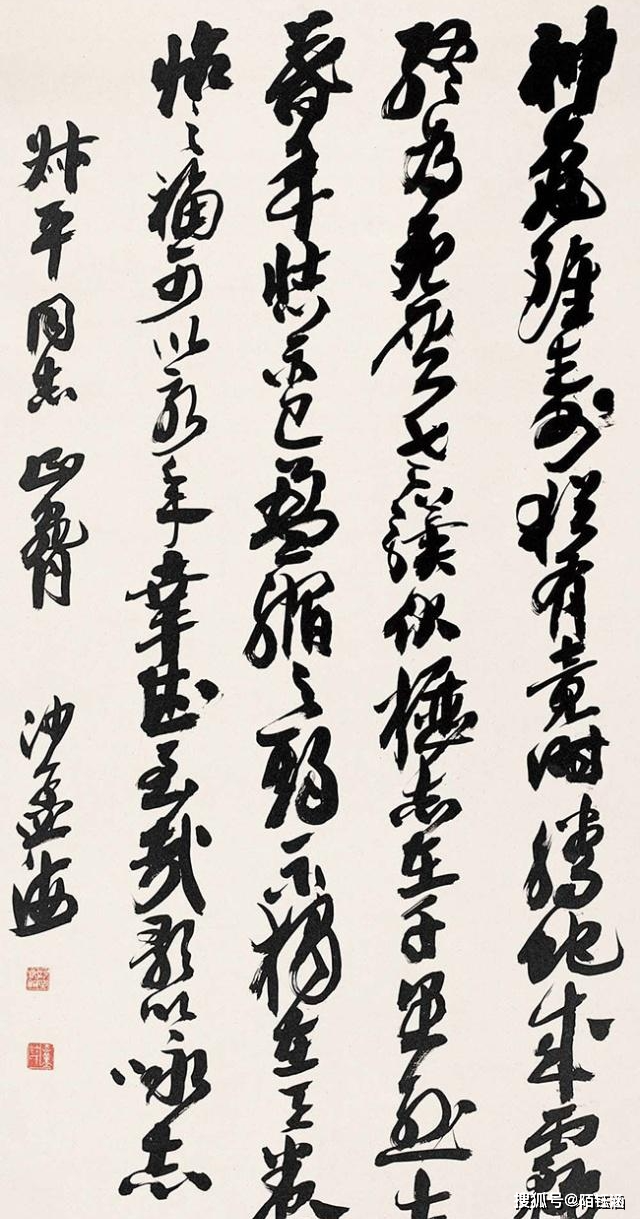 神龜雖壽猶有竟時騰蛇成霧
終為灰老驥伏櫪志在千里烈士
暮年壯心不已盈縮之期不獨在天養
怡之福可以永年幸甚至哉歌以咏志
叔平同志 正
沙孟海
搜狐号@陌